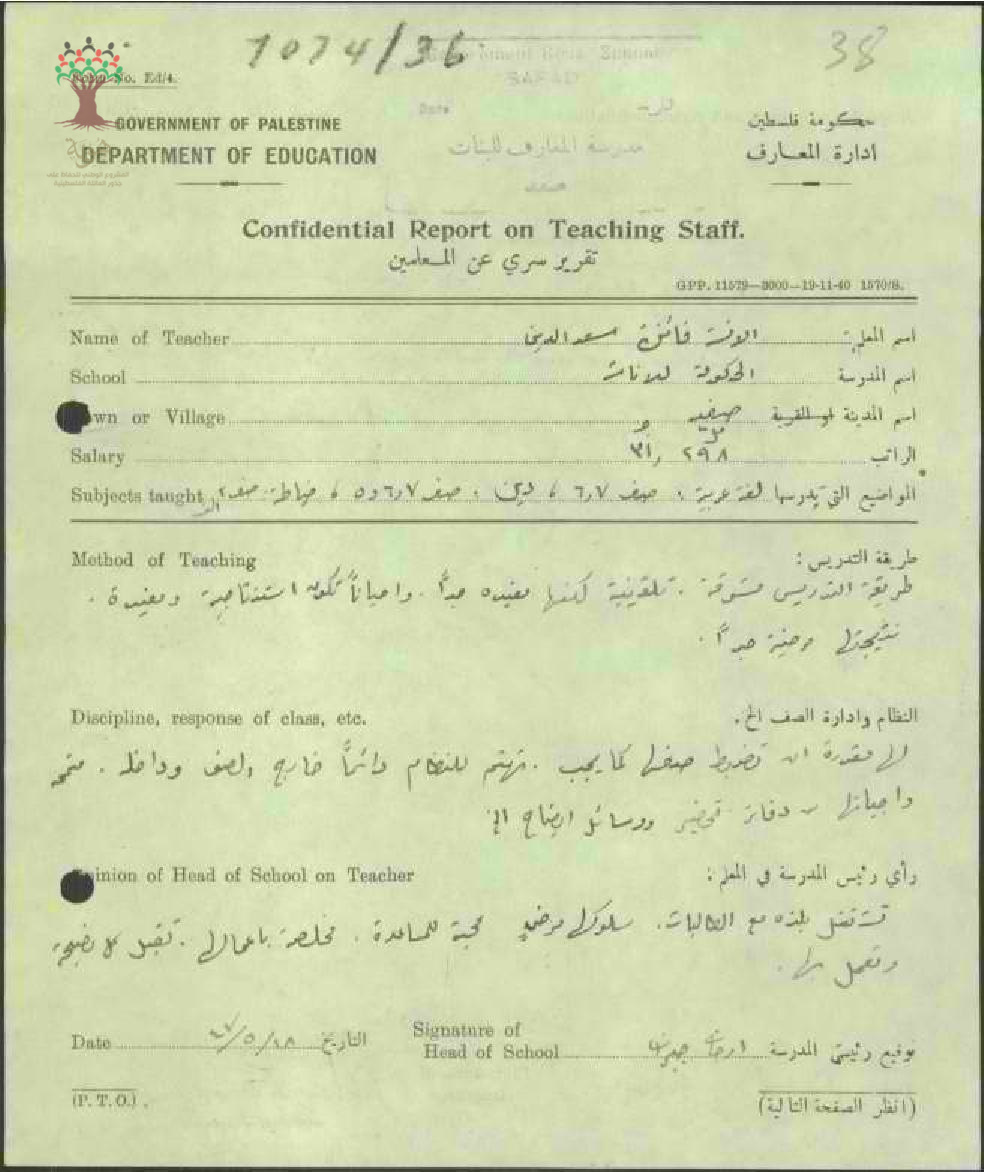 1074/36
38
Government Girls School
SAFAD
Form No. Ed/4.
Date
GOVERNMENT OF PALESTINE
حكومة فلسطين
DEPARTMENT OF EDUCATION
ادارة المعارف
مدرسة المعارف للبنات
صفد
Confidential Report on Teaching Staff.
تقرير سري عن المعلمين
GPP. 11579—3000—19-11-40 1570/S.
Name of Teacher الآنسة فائزة سعد الدين اسم المعلمة
School الحكومة للاناث اسم المدرسة
Town or Village صفد اسم المدينة او القرية
Salary ٢٩٨ ,٣١ الراتب
Subjects taught المواضيع التي تدرسها لغة عربية ، صف ٦,٧ ، دين ، صف ٦,٧ و٥ ، خياطة صف
Method of Teaching طريقة التدريس :
طريقة التدريس مشوقة . تلقينية لكنها مفيده جداً . واحياناً تكون استنتاجية ومفيدة .
نتيجتها مرضية جداً .
Discipline, response of class, etc. النظام وادارة الصف الخ.
لها مقدرة ان تضبط صفها كما يجب . تهتم للنظام دائماً خارج الصف وداخله . متممة
واجباتها دفاتر تحضير ووسائل ايضاح الخ
Opinion of Head of School on Teacher رأي رئيس المدرسة في المعلم :
تشتغل بلذه مع الطالبات . سلوكها مرضي محبة للمساعدة . مخلصة باعمالها . تقبل كل نصيحة
وتعمل بها .
Date ٤٢/٥/١٨ التاريخ Signature of
Head of School توقيع رئيس المدرسة
(P. T. O.) . (انظر الصفحة التالية)